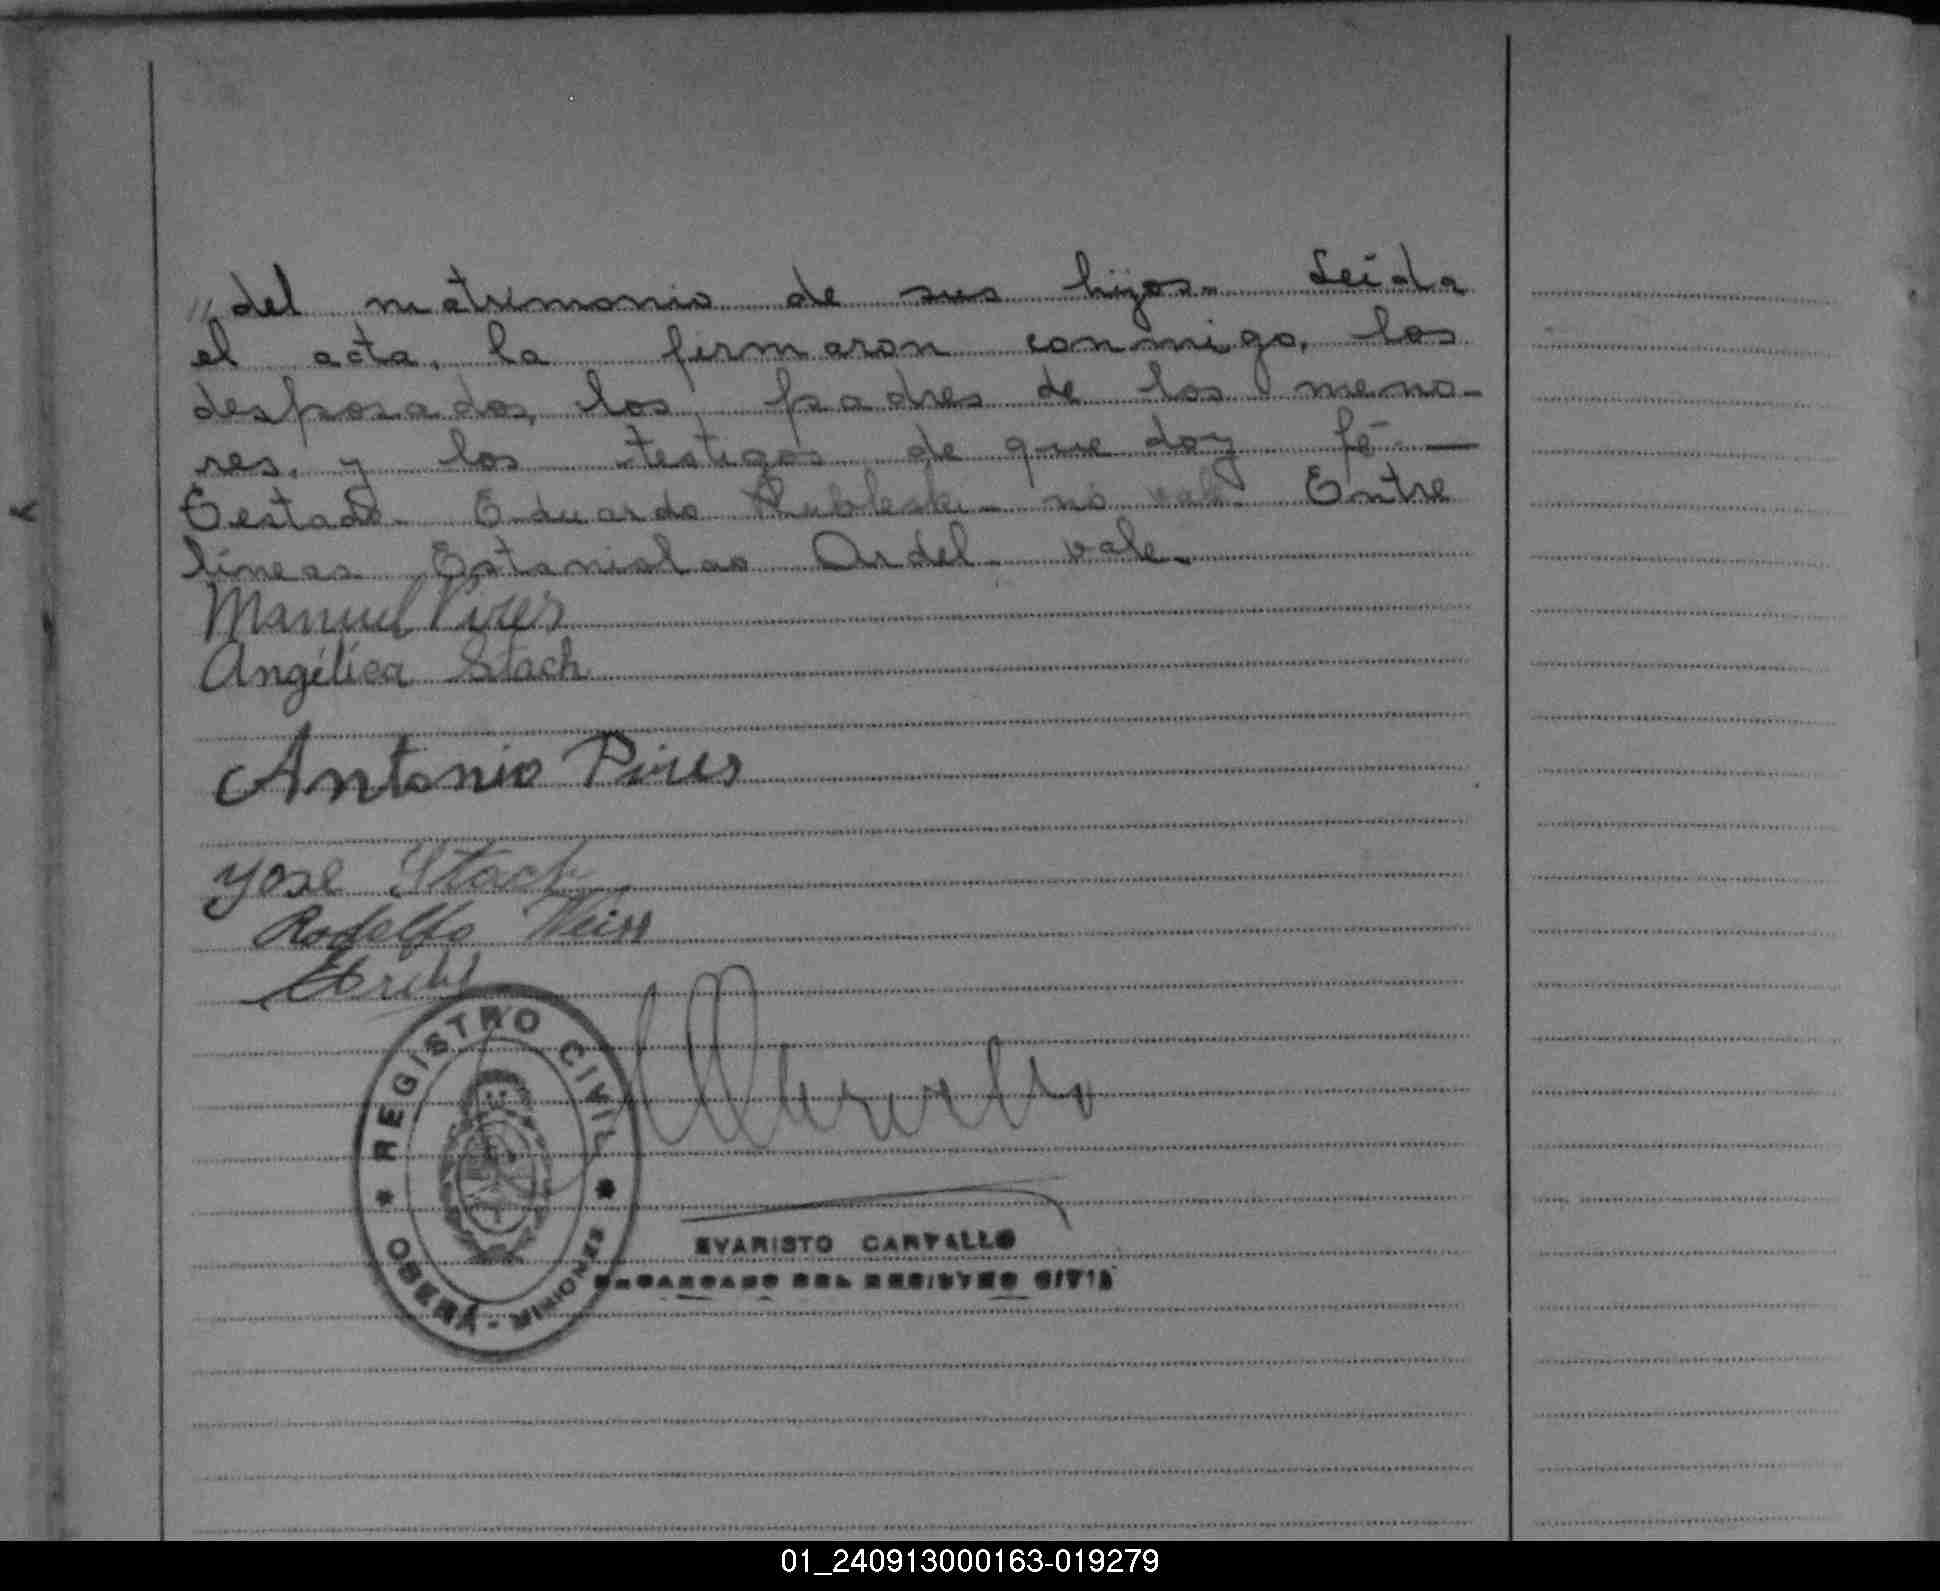 „ del matrimonio de sus hijos.- Leída
el acta, la firmaron conmigo, los
desposados, los padres de los meno-
res, y los testigos de que doy fé.-
Testado- Eduardo Kubleski- no vale. Entre
líneas Estanislao Ardel- vale-
Manuel Pires
Angélica Stach
Antonio Pires
Yose Stach
Rodolfo Weiss
REGISTRO CIVIL
OBERÁ - MISIONES
EVARISTO CARVALLO
ENCARGADO DEL REGISTRO CIVIL
01_240913000163-019279